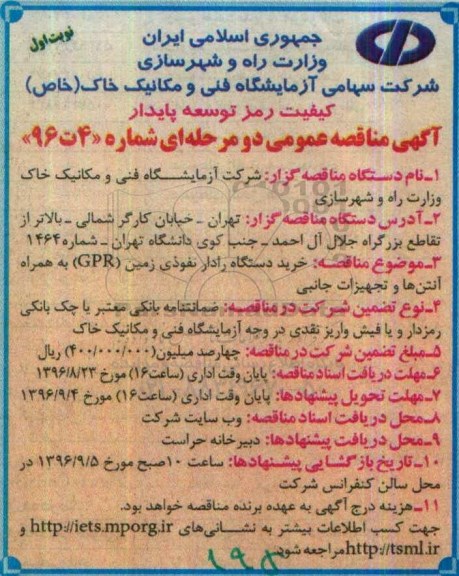 نوبت اول
جمهوری اسلامی ایران
وزارت راه و شهرسازی
شرکت سهامی آزمایشگاه فنی و مکانیک خاک(خاص)
کیفیت رمز توسعه پایدار
آگهی مناقصه عمومی دو مرحله‌ای شماره «۴ت۹۶»
۱ـ نام دستگاه مناقصه گزار: شرکت آزمایشگاه فنی و مکانیک خاک
وزارت راه و شهرسازی
۲ـ آدرس دستگاه مناقصه گزار: تهران ـ خیابان کارگر شمالی ـ بالاتر از
تقاطع بزرگراه جلال آل احمد ـ جنب کوی دانشگاه تهران ـ شماره ۱۴۶۴
۳ـ موضوع مناقصه: خرید دستگاه رادار نفوذی زمین (GPR) به همراه
آنتن‌ها و تجهیزات جانبی
۴ـ نوع تضمین شرکت در مناقصه: ضمانتنامه بانکی معتبر یا چک بانکی
رمزدار و یا فیش واریز نقدی در وجه آزمایشگاه فنی و مکانیک خاک
۵ـ مبلغ تضمین شرکت در مناقصه: چهارصد میلیون (۴۰۰/۰۰۰/۰۰۰) ریال
۶ـ مهلت دریافت اسناد مناقصه: پایان وقت اداری (ساعت۱۶) مورخ ۱۳۹۶/۸/۲۳
۷ـ مهلت تحویل پیشنهادها: پایان وقت اداری (ساعت۱۶) مورخ ۱۳۹۶/۹/۴
۸ـ محل دریافت اسناد مناقصه: وب سایت شرکت
۹ـ محل دریافت پیشنهادها: دبیرخانه حراست
۱۰ـ تاریخ بازگشایی پیشنهادها: ساعت ۱۰صبح مورخ ۱۳۹۶/۹/۵ در
محل سالن کنفرانس شرکت
۱۱ـ هزینه درج آگهی به عهده برنده مناقصه خواهد بود.
جهت کسب اطلاعات بیشتر به نشانی‌های http://iets.mporg.ir و
http://tsml.ir مراجعه شود.